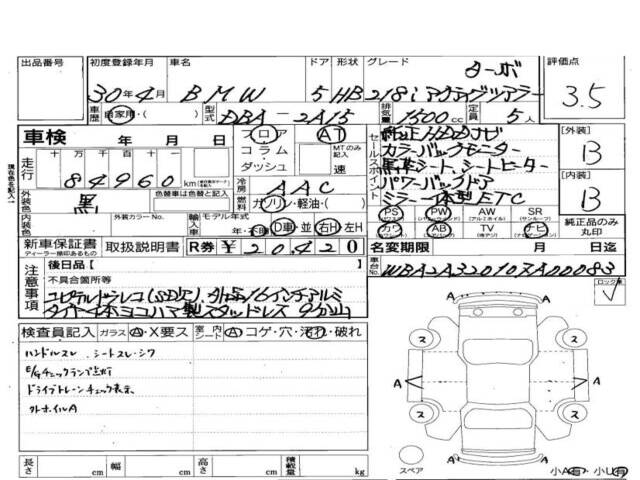 出品番号 初度登録年月 車名 ドア 形状 グレード 評価点
ターボ
30年4月 BMW 5 HB 218i アクティブツアラー 3.5
車歴 自家用・( ) 型式 DBA-2A15 排気量 1500cc 定員 5人
車検 年 月 日 フロア コラム・ダッシュ AT MTのみ記入 速
走行 十万 万 千 百 十 一
84960 km
セールスポイント
純正HDDナビ
カラーバックモニター
黒革シート、シートヒーター
パワーバックドア
ミラー一体型ETC
[外装] B
[内装] B
外装色 黒 色替車は色替と記入 冷房 AAC
燃料 ガソリン・軽油・( )
PS (パワステ) PW (パワーウィンドウ) AW (アルミホイル) SR (サンルーフ)
カワ AB (エアバッグ) TV (専テジ) ナビ 純正品のみ丸印
内装色 外装カラーNo. 輸入車 モデル年式 年 D車・並 右H・左H
新車保証書 ディーラー捺印あるもの 取扱説明書 R券 ¥20,420 名変期限 月 日迄
注意事項 後日品【 】
車台No. WBA2A32010
不具合箇所等
ロック車
検査員記入 ガラス A・X要ス 室内シート A コゲ・穴・汚れ・破れ
ハンドルスレ シートスレ・シワ
E/Gチェックランプ点灯
ドライブトレーンチェック表示
ホイルA
A A A A A A
ス ス ス ス
スペア
小A有 小U有
長さ cm 幅 cm 高さ cm 積載量 kg
現在色を記入